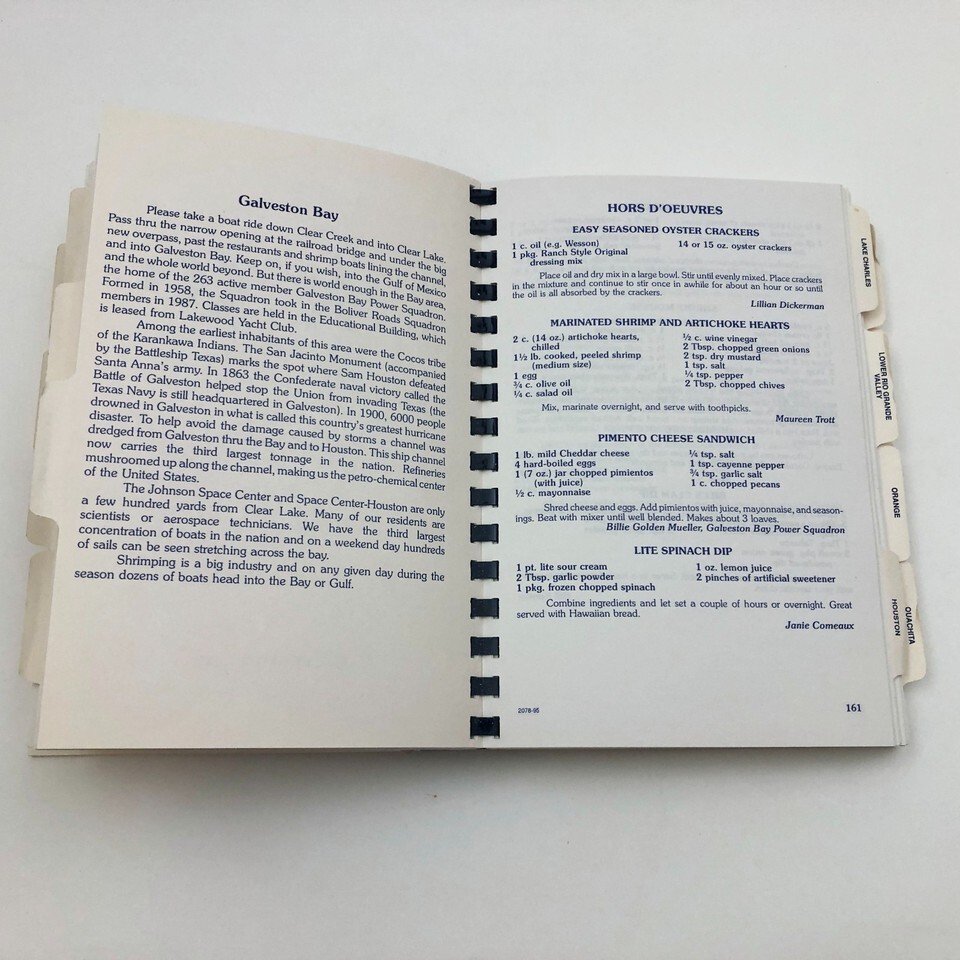 Galveston Bay
Please take a boat ride down Clear Creek and into Clear Lake.
Pass thru the narrow opening at the railroad bridge and under the big
new overpass, past the restaurants and shrimp boats lining the channel,
and into Galveston Bay. Keep on, if you wish, into the Gulf of Mexico
and the whole world beyond. But there is world enough in the Bay area,
the home of the 263 active member Galveston Bay Power Squadron.
Formed in 1958, the Squadron took in the Boliver Roads Squadron
members in 1987. Classes are held in the Educational Building, which
is leased from Lakewood Yacht Club.
Among the earliest inhabitants of this area were the Cocos tribe
of the Karankawa Indians. The San Jacinto Monument (accompanied
by the Battleship Texas) marks the spot where Sam Houston defeated
Santa Anna's army. In 1863 the Confederate naval victory called the
Battle of Galveston helped stop the Union from invading Texas (the
Texas Navy is still headquartered in Galveston). In 1900, 6000 people
drowned in Galveston in what is called this country's greatest hurricane
disaster. To help avoid the damage caused by storms a channel was
dredged from Galveston thru the Bay and to Houston. This ship channel
now carries the third largest tonnage in the nation. Refineries
mushroomed up along the channel, making us the petro-chemical center
of the United States.
The Johnson Space Center and Space Center-Houston are only
a few hundred yards from Clear Lake. Many of our residents are
scientists or aerospace technicians. We have the third largest
concentration of boats in the nation and on a weekend day hundreds
of sails can be seen stretching across the bay.
Shrimping is a big industry and on any given day during the
season dozens of boats head into the Bay or Gulf.
HORS D'OEUVRES
EASY SEASONED OYSTER CRACKERS
1 c. oil (e.g. Wesson)
1 pkg. Ranch Style Original
dressing mix
14 or 15 oz. oyster crackers
Place oil and dry mix in a large bowl. Stir until evenly mixed. Place crackers
in the mixture and continue to stir once in awhile for about an hour or so until
the oil is all absorbed by the crackers.
Lillian Dickerman
MARINATED SHRIMP AND ARTICHOKE HEARTS
2 c. (14 oz.) artichoke hearts,
chilled
1½ lb. cooked, peeled shrimp
(medium size)
1 egg
¾ c. olive oil
¼ c. salad oil
½ c. wine vinegar
2 Tbsp. chopped green onions
2 tsp. dry mustard
1 tsp. salt
¼ tsp. pepper
2 Tbsp. chopped chives
Mix, marinate overnight, and serve with toothpicks.
Maureen Trott
PIMENTO CHEESE SANDWICH
1 lb. mild Cheddar cheese
4 hard-boiled eggs
1 (7 oz.) jar chopped pimientos
(with juice)
½ c. mayonnaise
¼ tsp. salt
1 tsp. cayenne pepper
¾ tsp. garlic salt
1 c. chopped pecans
Shred cheese and eggs. Add pimientos with juice, mayonnaise, and season-
ings. Beat with mixer until well blended. Makes about 3 loaves.
Billie Golden Mueller, Galveston Bay Power Squadron
LITE SPINACH DIP
1 pt. lite sour cream
2 Tbsp. garlic powder
1 pkg. frozen chopped spinach
1 oz. lemon juice
2 pinches of artificial sweetener
Combine ingredients and let set a couple of hours or overnight. Great
served with Hawaiian bread.
Janie Comeaux
2078-95
161
LAKE CHARLES
LOWER RIO GRANDE
VALLEY
ORANGE
OUACHITA
HOUSTON